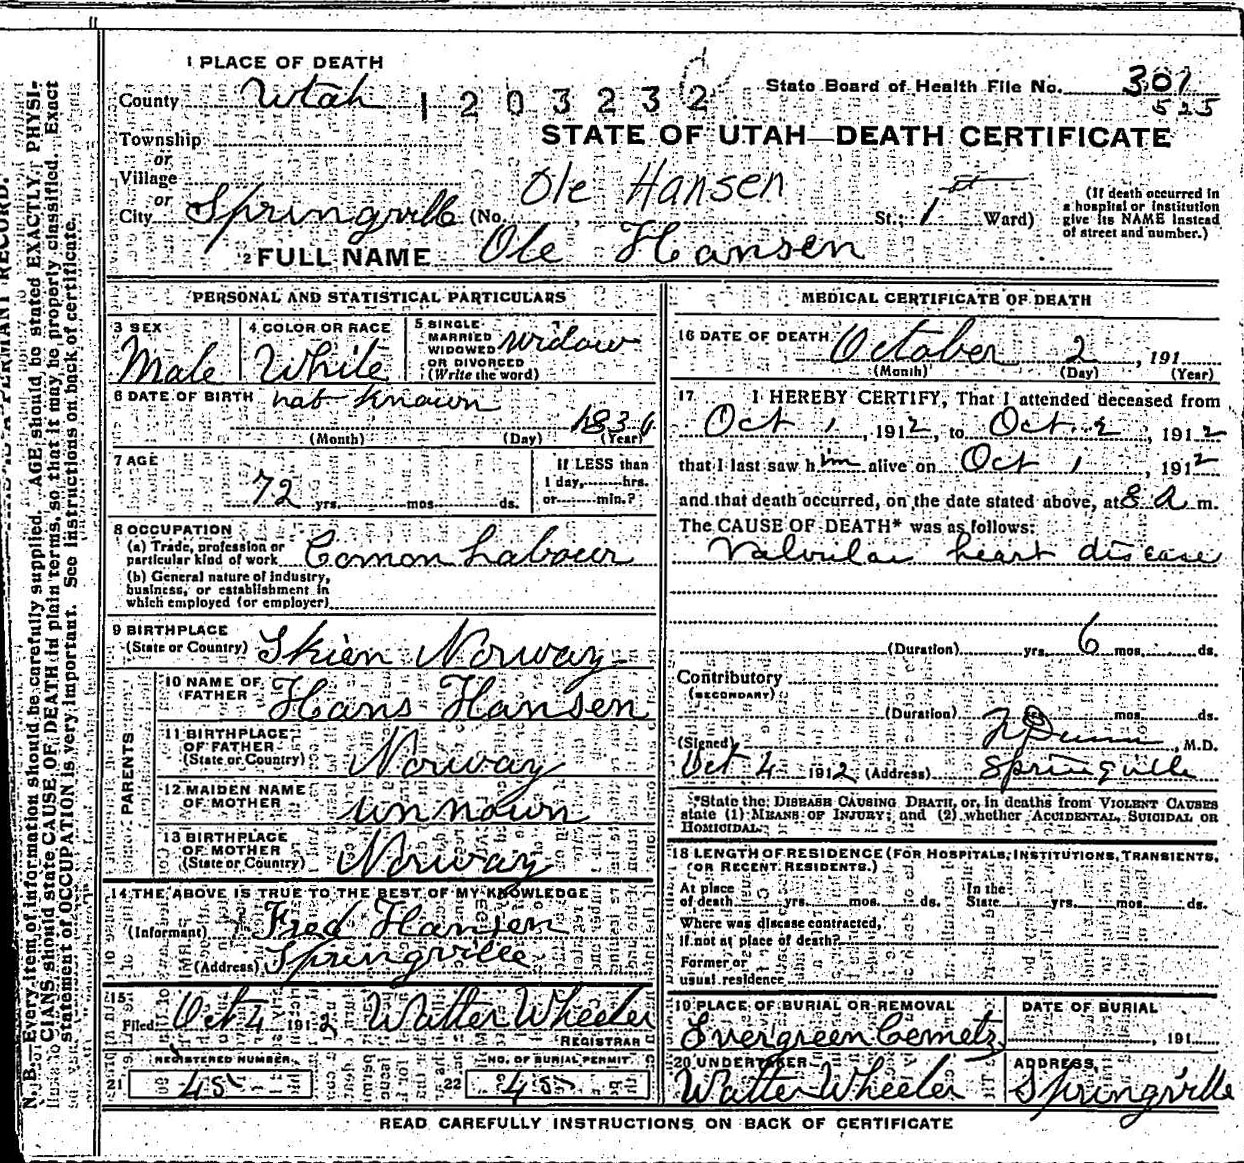 1 PLACE OF DEATH
County Utah 1203232
State Board of Health File No. 301
525
Township
or
STATE OF UTAH—DEATH CERTIFICATE
Village
or
Ole Hansen
City Springville (No. St.; 1st Ward)
(If death occurred in
a hospital or institution
give its NAME instead
of street and number.)
2 FULL NAME Ole Hansen
PERSONAL AND STATISTICAL PARTICULARS
3 SEX
Male
4 COLOR OR RACE
White
5 SINGLE
MARRIED
WIDOWED
OR DIVORCED
(Write the word)
widow
6 DATE OF BIRTH not known
1836
(Month) (Day) (Year)
7 AGE
72 yrs. mos. ds.
If LESS than
1 day, hrs.
or min.?
8 OCCUPATION
(a) Trade, profession or
particular kind of work Comon Labour
(b) General nature of industry,
business, or establishment in
which employed (or employer)
9 BIRTHPLACE
(State or Country) Skien Norway
PARENTS
10 NAME OF
FATHER Hans Hansen
11 BIRTHPLACE
OF FATHER
(State or Country) Norway
12 MAIDEN NAME
OF MOTHER unnown
13 BIRTHPLACE
OF MOTHER
(State or Country) Norway
14 THE ABOVE IS TRUE TO THE BEST OF MY KNOWLEDGE
(Informant) Fred Hansen
(Address) Springville
15
Filed Oct 4 1912 Walter Wheeler
REGISTRAR
REGISTERED NUMBER
21 45
NO. OF BURIAL PERMIT
22 45
MEDICAL CERTIFICATE OF DEATH
16 DATE OF DEATH October 2, 191
(Month) (Day) (Year)
17 I HEREBY CERTIFY, That I attended deceased from
Oct 1, 1912, to Oct 2, 1912
that I last saw him alive on Oct 1, 1912
and that death occurred, on the date stated above, at 8 a m.
The CAUSE OF DEATH* was as follows:
Valvular heart disease
(Duration) yrs. 6 mos. ds.
Contributory
(SECONDARY)
(Duration) mos. ds.
(Signed) Dunn, M.D.
Oct 4 1912 (Address) Springville
*State the DISEASE CAUSING DEATH, or, in deaths from VIOLENT CAUSES
state (1) MEANS OF INJURY; and (2) whether ACCIDENTAL, SUICIDAL OR
HOMICIDAL.
18 LENGTH OF RESIDENCE (FOR HOSPITALS, INSTITUTIONS, TRANSIENTS,
OR RECENT RESIDENTS.)
At place
of death yrs. mos. ds.
In the
State yrs. mos. ds.
Where was disease contracted,
If not at place of death?
Former or
usual residence
19 PLACE OF BURIAL OR REMOVAL
Evergreen Cemety
DATE OF BURIAL
, 191
20 UNDERTAKER
Walter Wheeler
ADDRESS
Springville
READ CAREFULLY INSTRUCTIONS ON BACK OF CERTIFICATE
N. B.—Every item of information should be carefully supplied. AGE should be stated EXACTLY. PHYSI-
CIANS should state CAUSE OF DEATH in plain terms, so that it may be properly classified. Exact
statement of OCCUPATION is very important. See instructions on back of certificate.